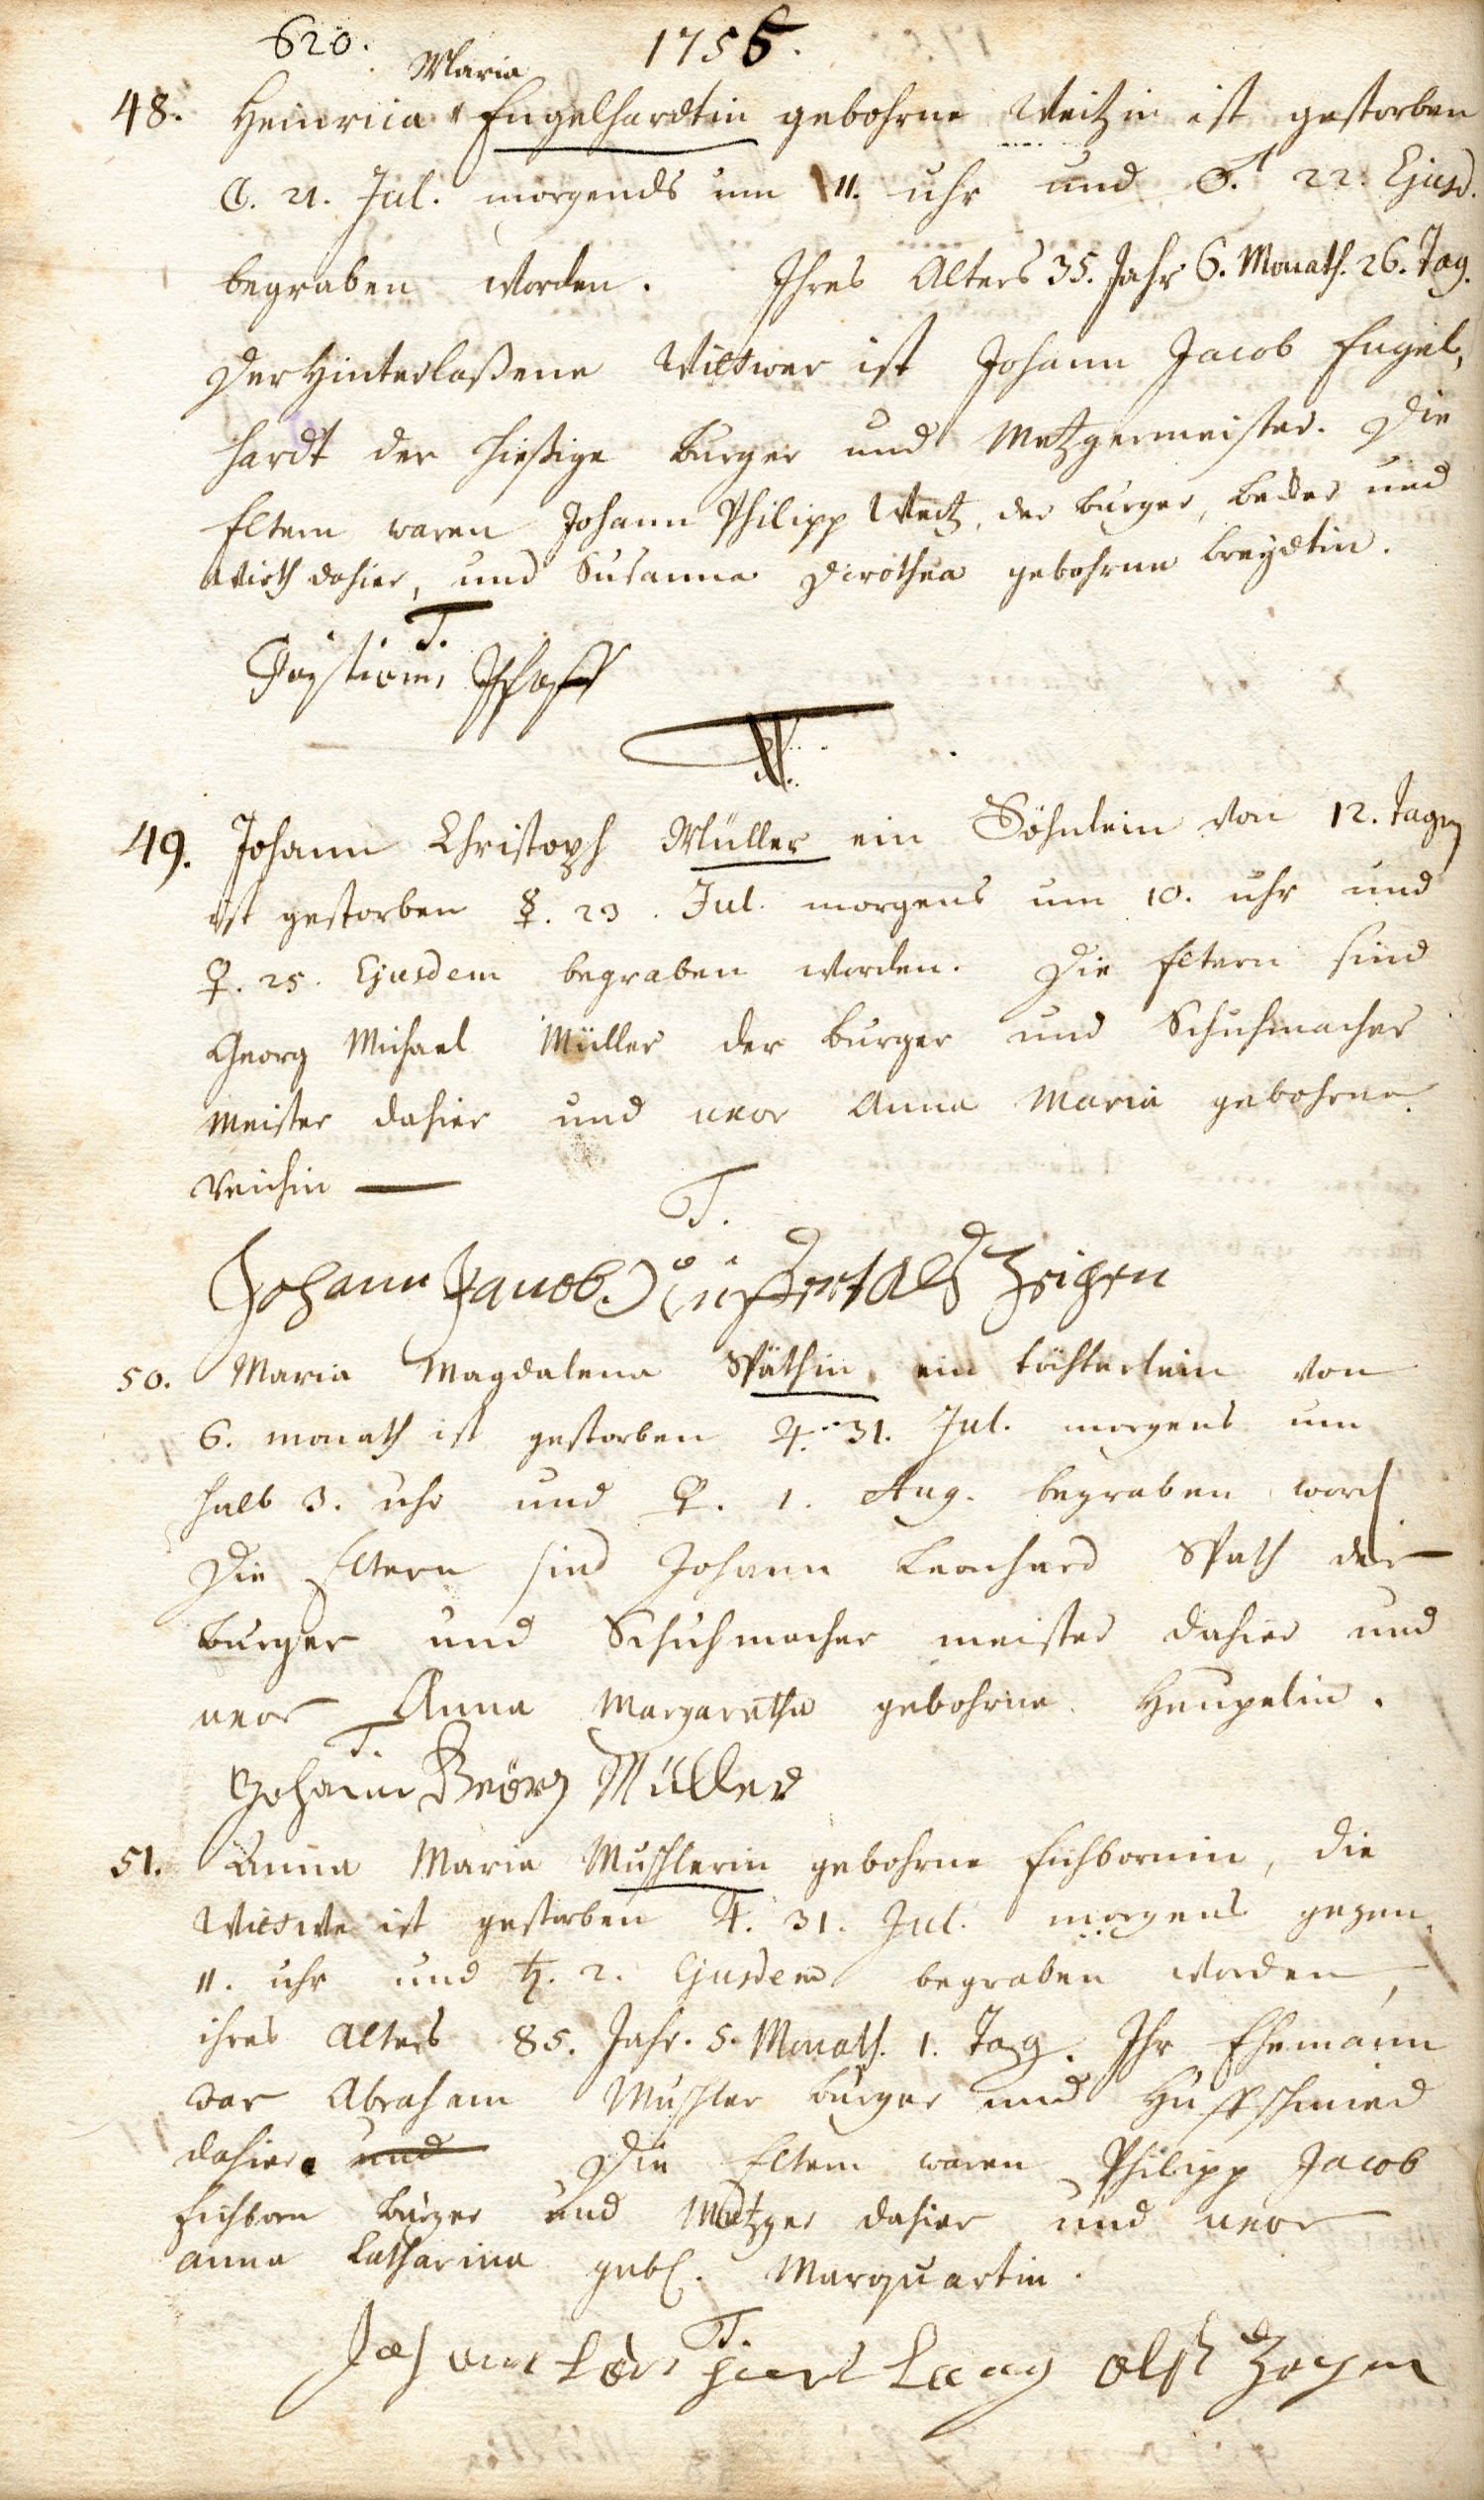 620. 1755.
Maria
48. Heinrica Engelhardtin gebohrne Weitzin ist gestorben
☾. 21. Jul. morgends um 11. uhr und ♂. 22. Ejusd.
begraben worden. Ihres Alters 35. Jahr 6. Monath. 26. Tag.
Der Hinterlaßene Wittwer ist Johann Jacob Engel,
hardt der hießige burger und Metzgermeister. Die
Eltern waren Johann Philipp Weitz, der burger, becker und
Wirth dahier, und Susanna Dorothea gebohrne
T.
Pfaff
T.
49. Johann Christoph Müller ein Söhnlein von 12. Tagen
ist gestorben ☿. 23. Jul. morgens um 10. uhr und
♀. 25. Ejusdem begraben worden. Die Eltern sind
Georg Michael Müller der burger und Schuhmacher
Meister dahier und uxor Anna Maria gebohrne
Reichin —
T.
Johann Jacob als Zeigen
50. Maria Magdalena Späthin, ein töchterlein von
6. monath ist gestorben ♃. 31. Jul. morgens um
halb 3. uhr und ♀. 1. Aug. begraben word
Die Eltern sind Johann Leonhard Spath der
burger und Schuhmacher meister dahier und
uxor Anna Margaretha gebohrne Heupelin.
T.
Johann Geörg Müller
51. Anna Maria Muschlerin gebohrne Eichbornin, die
Wittwe ist gestorben ♃. 31. Jul. morgens gegen
11. uhr und ♄. 2. Ejusdem begraben worden,
ihres Alters 85. Jahr. 5. Monath. 1. Tag. Ihr Ehemann
war Abraham Muschler burger und Huffschmied
dahier. und Die Eltern waren Philipp Jacob
Eichborn burger und Metzger dahier und uxor
anna Catharina gebl. Marquartin.
T.
Johann Lang als Zeigen